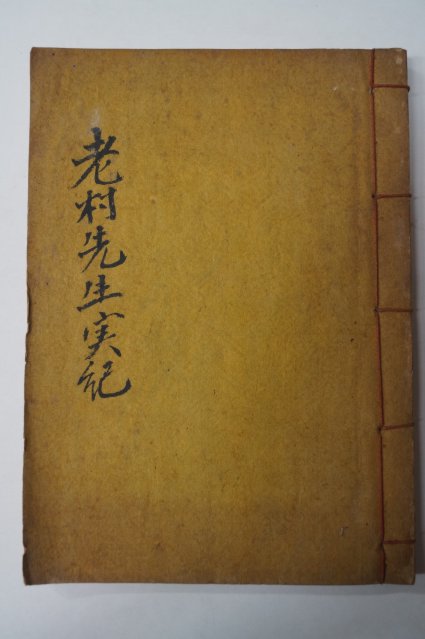 老村先生実紀